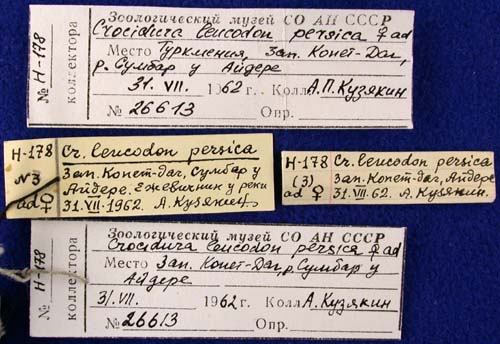 Зоологический музей СО АН СССР
№ Н-178
коллектора
Crocidura leucodon persica ♀ ad
Место Туркмения, Зап. Копет-Даг,
р. Сумбар у Айдере
31. VII. 1962 г. Колл. А.П. Кузякин
№ 26613 Опр.
Н-178 Cr. leucodon persica
№3 Зап. Копет-даг, Сумбар у
ad ♀ Айдере. Ежевичник у реки
31. VII. 1962. А. Кузякин
Н-178 Cr. leucodon persica
(3) Зап. Копет-даг, Айдере
ad ♀ 31. VII. 62. А. Кузякин.
Зоологический музей СО АН СССР
№ Н-178
коллектора
Crocidura leucodon persica ♀ ad
Место Зап. Копет-Даг, р. Сумбар у
Айдере
31. VII. 1962 г. Колл. А. Кузякин
№ 26613 Опр.